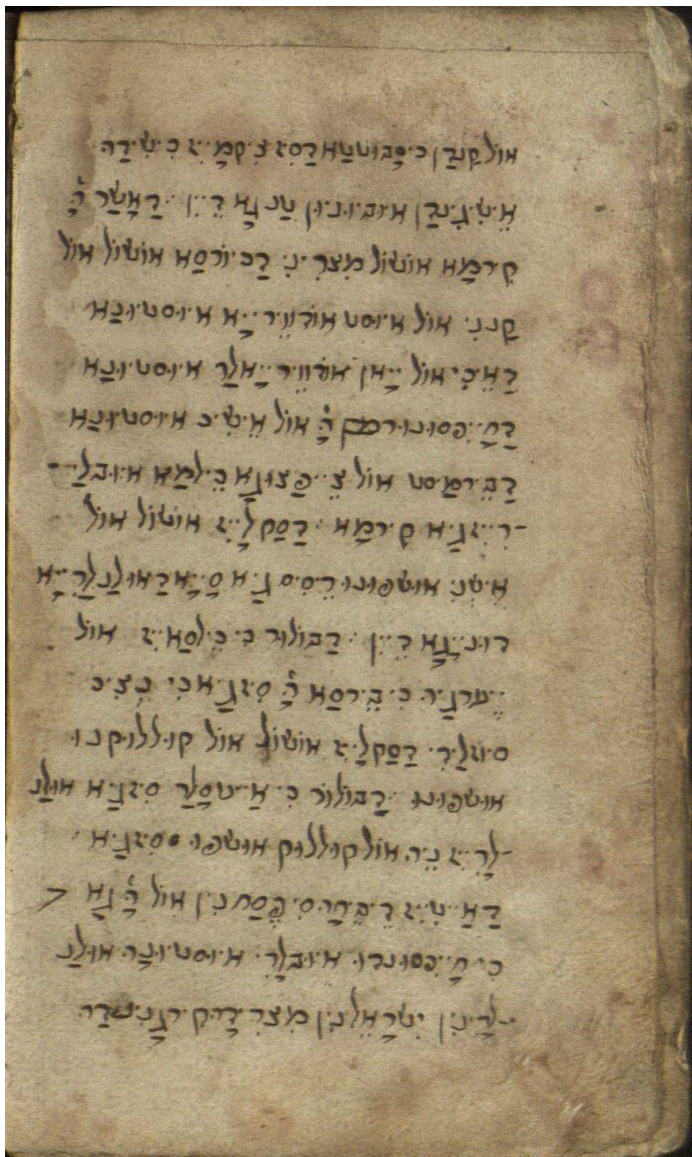 אול קנדן כי סבוטטא דסיז ציקמייז כישי דה
אישיגינדן איוינין טנגא דיין דאשר ה
קירמא אושול מצריני דכיורסא אושול אול
קנני אול איוסט אורווירייא איוסטונא
דאיכי אול ייאן אורווירייאלר איוסטונא
דחייפסונור ה אול אישיכ איוסטונא
דבירמסט אול צייפצוגא כילמא איובלי
-רייזגא קירמא דסקלייז אושול אול
אישני אושפונו ריסיםגא סייא דאולנלרייא
דונייגא דיין דבולור כי כילסאייז אול
יערגיה כי בירסא ה סיזגא כי ניציכ
סוזלדי דסקלייז אושול אול קוללוקנו
אושפונו דבולור כי אייטסלר סיזגא אולנ
-לרייזניה אול קוללוק אושפו סיזגא
דאייטייז דיביחהסי פסחנין אול ה גא
כי חייפסונדו איובלרי איוסטונה אולנ
-לרינין ישראלנין מצרידה קירגנינדה